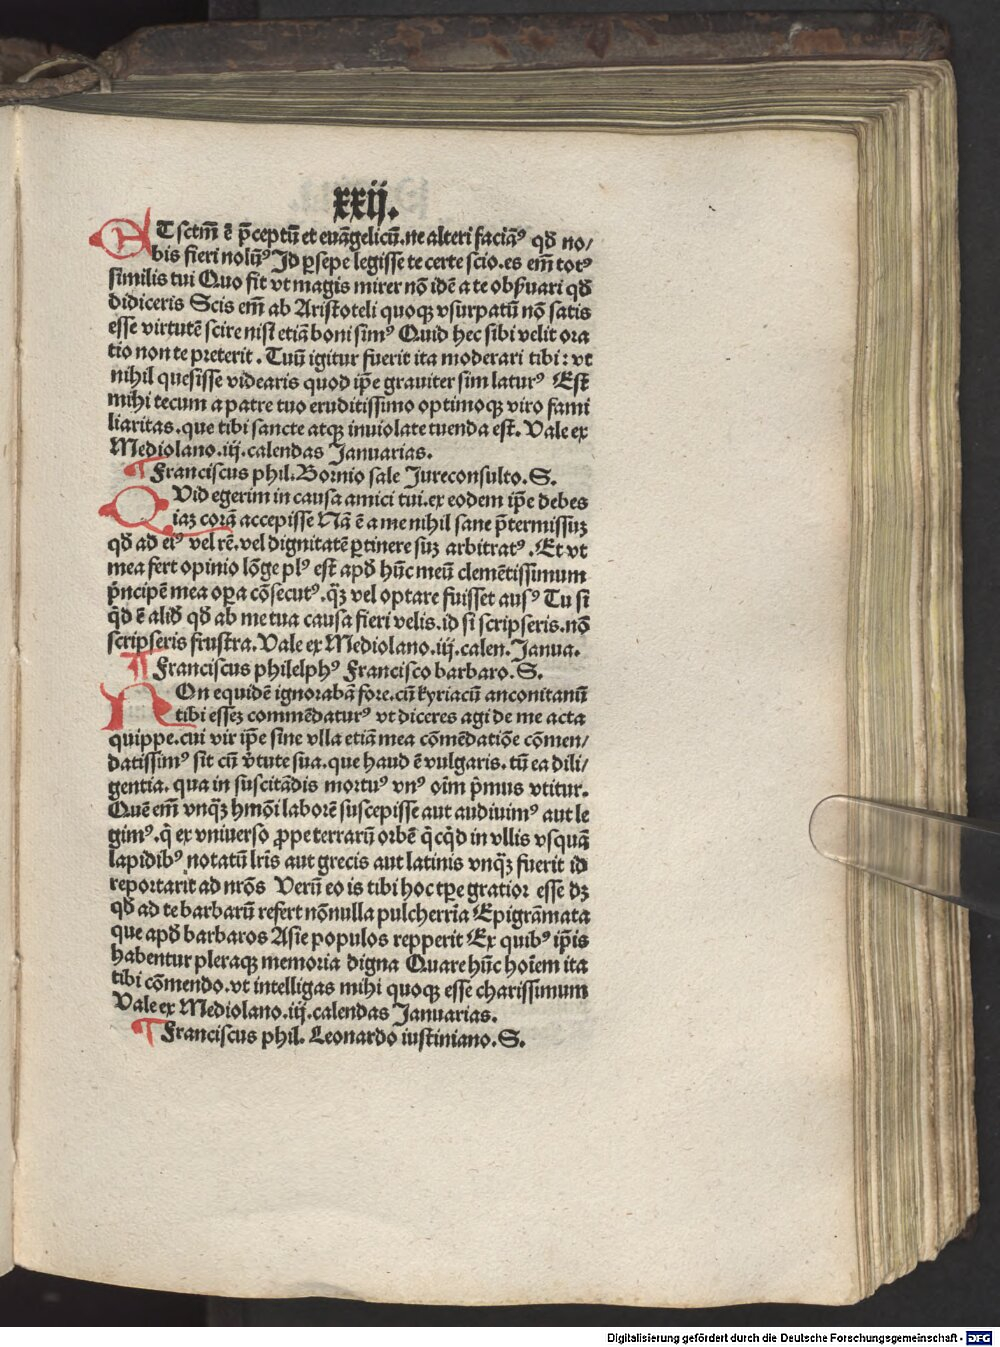 xxij.
AT sctm̄ ē p̄ceptū et euāgelicū.ne alteri faciaꝰ qđ no/
bis fieri nolūꝰ Id ꝑsepe legisse te certe scio.es em̄ totꝰ
similis tui Quo fit vt magis mirer nō idē a te obẜuari qđ
didiceris Scis em̄ ab Aristoteli quoqꝫ vsurpatū nō satis
esse virtutē scire nisi etiā boni simꝰ Quid hec sibi velit ora
tio non te preterit. Tuū igitur fuerit ita moderari tibi: vt
nihil quesisse videaris quod ip̄e grauiter sim laturꝰ Est
mihi tecum a patre tuo eruditissimo optimoqꝫ viro fami
liaritas.que tibi sancte atqꝫ inuiolate tuenda est. Vale ex
Mediolano.iij.calendas Januarias.
¶ Franciscus phil. Bornio sale Jureconsulto. S.
QVid egerim in causa amici tui.ex eodem ip̄e debes
iaꝫ corā accepisse Nā ē a me nihil sane p̄termissuꝫ
qđ ad eiꝰ vel rē.vel dignitatē ꝑtinere suꝫ arbitratꝰ. Et vt
mea fert opinio lōge plꝰ est apđ hūc meū clemētissimum
p̄ncipē mea oꝑa cōsecutꝰ. qꝫ̄ vel optare fuisset ausꝰ Tu si
qđ ē aliđ qđ ab me tua causa fieri velis.id si scripseris.nō
scripseris frustra. Vale ex Mediolano.iij.calen. Janua.
¶ Franciscus philelphꝰ Francisco barbaro. S.
NOn equidē ignorabā fore.cū kyriacū anconitanū
tibi esseꝫ commēdaturꝰ vt diceres agi de me acta
quippe.cui vir ip̄e sine vlla etiā mea cōmēdatiōe cōmen/
datissimꝰ sit cū v̄tute sua.que haud ē vulgaris. tū ea dili/
gentia. qua in suscitādis mortuꝰ vnꝰ oīm p̄mus vtitur.
Quē em̄ vnqꝫ̄ hmōi laborē suscepisse aut audiuimꝰ aut le
gimꝰ.q̄ ex vniuerso ꝓpe terrarū orbē q̄cqđ in vllis vsquā
lapidibꝰ notatū lr̄is aut grecis aut latinis vnqꝫ̄ fuerit id
reportarit ad nrōs Verū eo is tibi hoc tꝑe gratior esse dꝫ
qđ ad te barbarū refert nōnulla pulcherria Epigrāmata
que apđ barbaros Asie populos repperit Ex quibꝰ ip̄is
habentur pleraqꝫ memoria digna Quare hūc hoīem ita
tibi cōmendo.vt intelligas mihi quoqꝫ esse charissimum
Vale ex Mediolano.iij.calendas Januarias.
¶ Franciscus phil. Leonardo iustiniano. S.
Digitalisierung gefördert durch die Deutsche Forschungsgemeinschaft - DFG